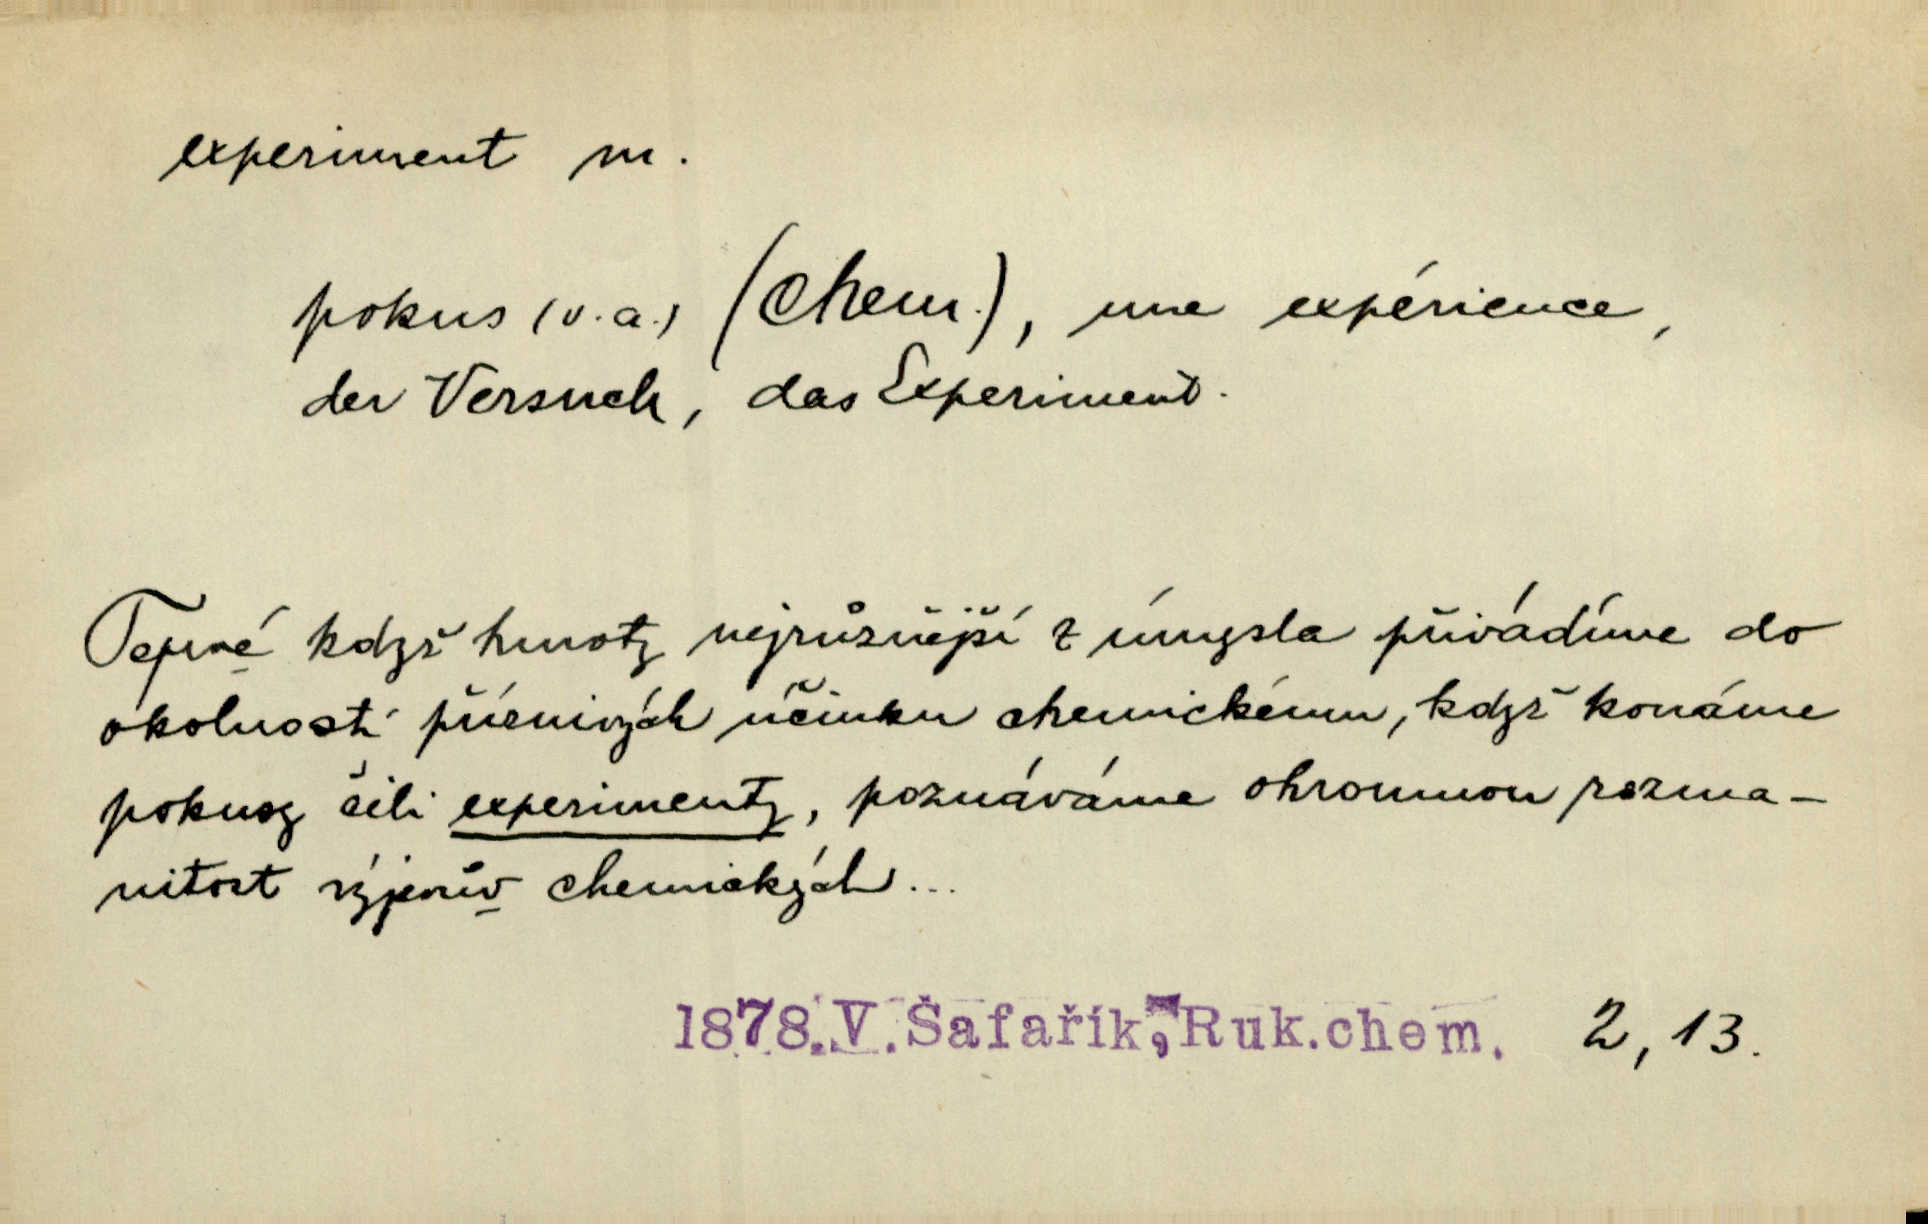 experiment m.
pokus (v. a.) (chem.), une expérience,
der Versuch, das Experiment.
Teprvé když hmoty nejrůznější z úmysla přivádíme do
okolností příznivých účinku chemickému, když konáme
pokusy čili experimenty, poznáváme ohromnou rozma-
nitost výjevův chemických...
1878.V.Šafařík,Ruk.chem. 2,13.